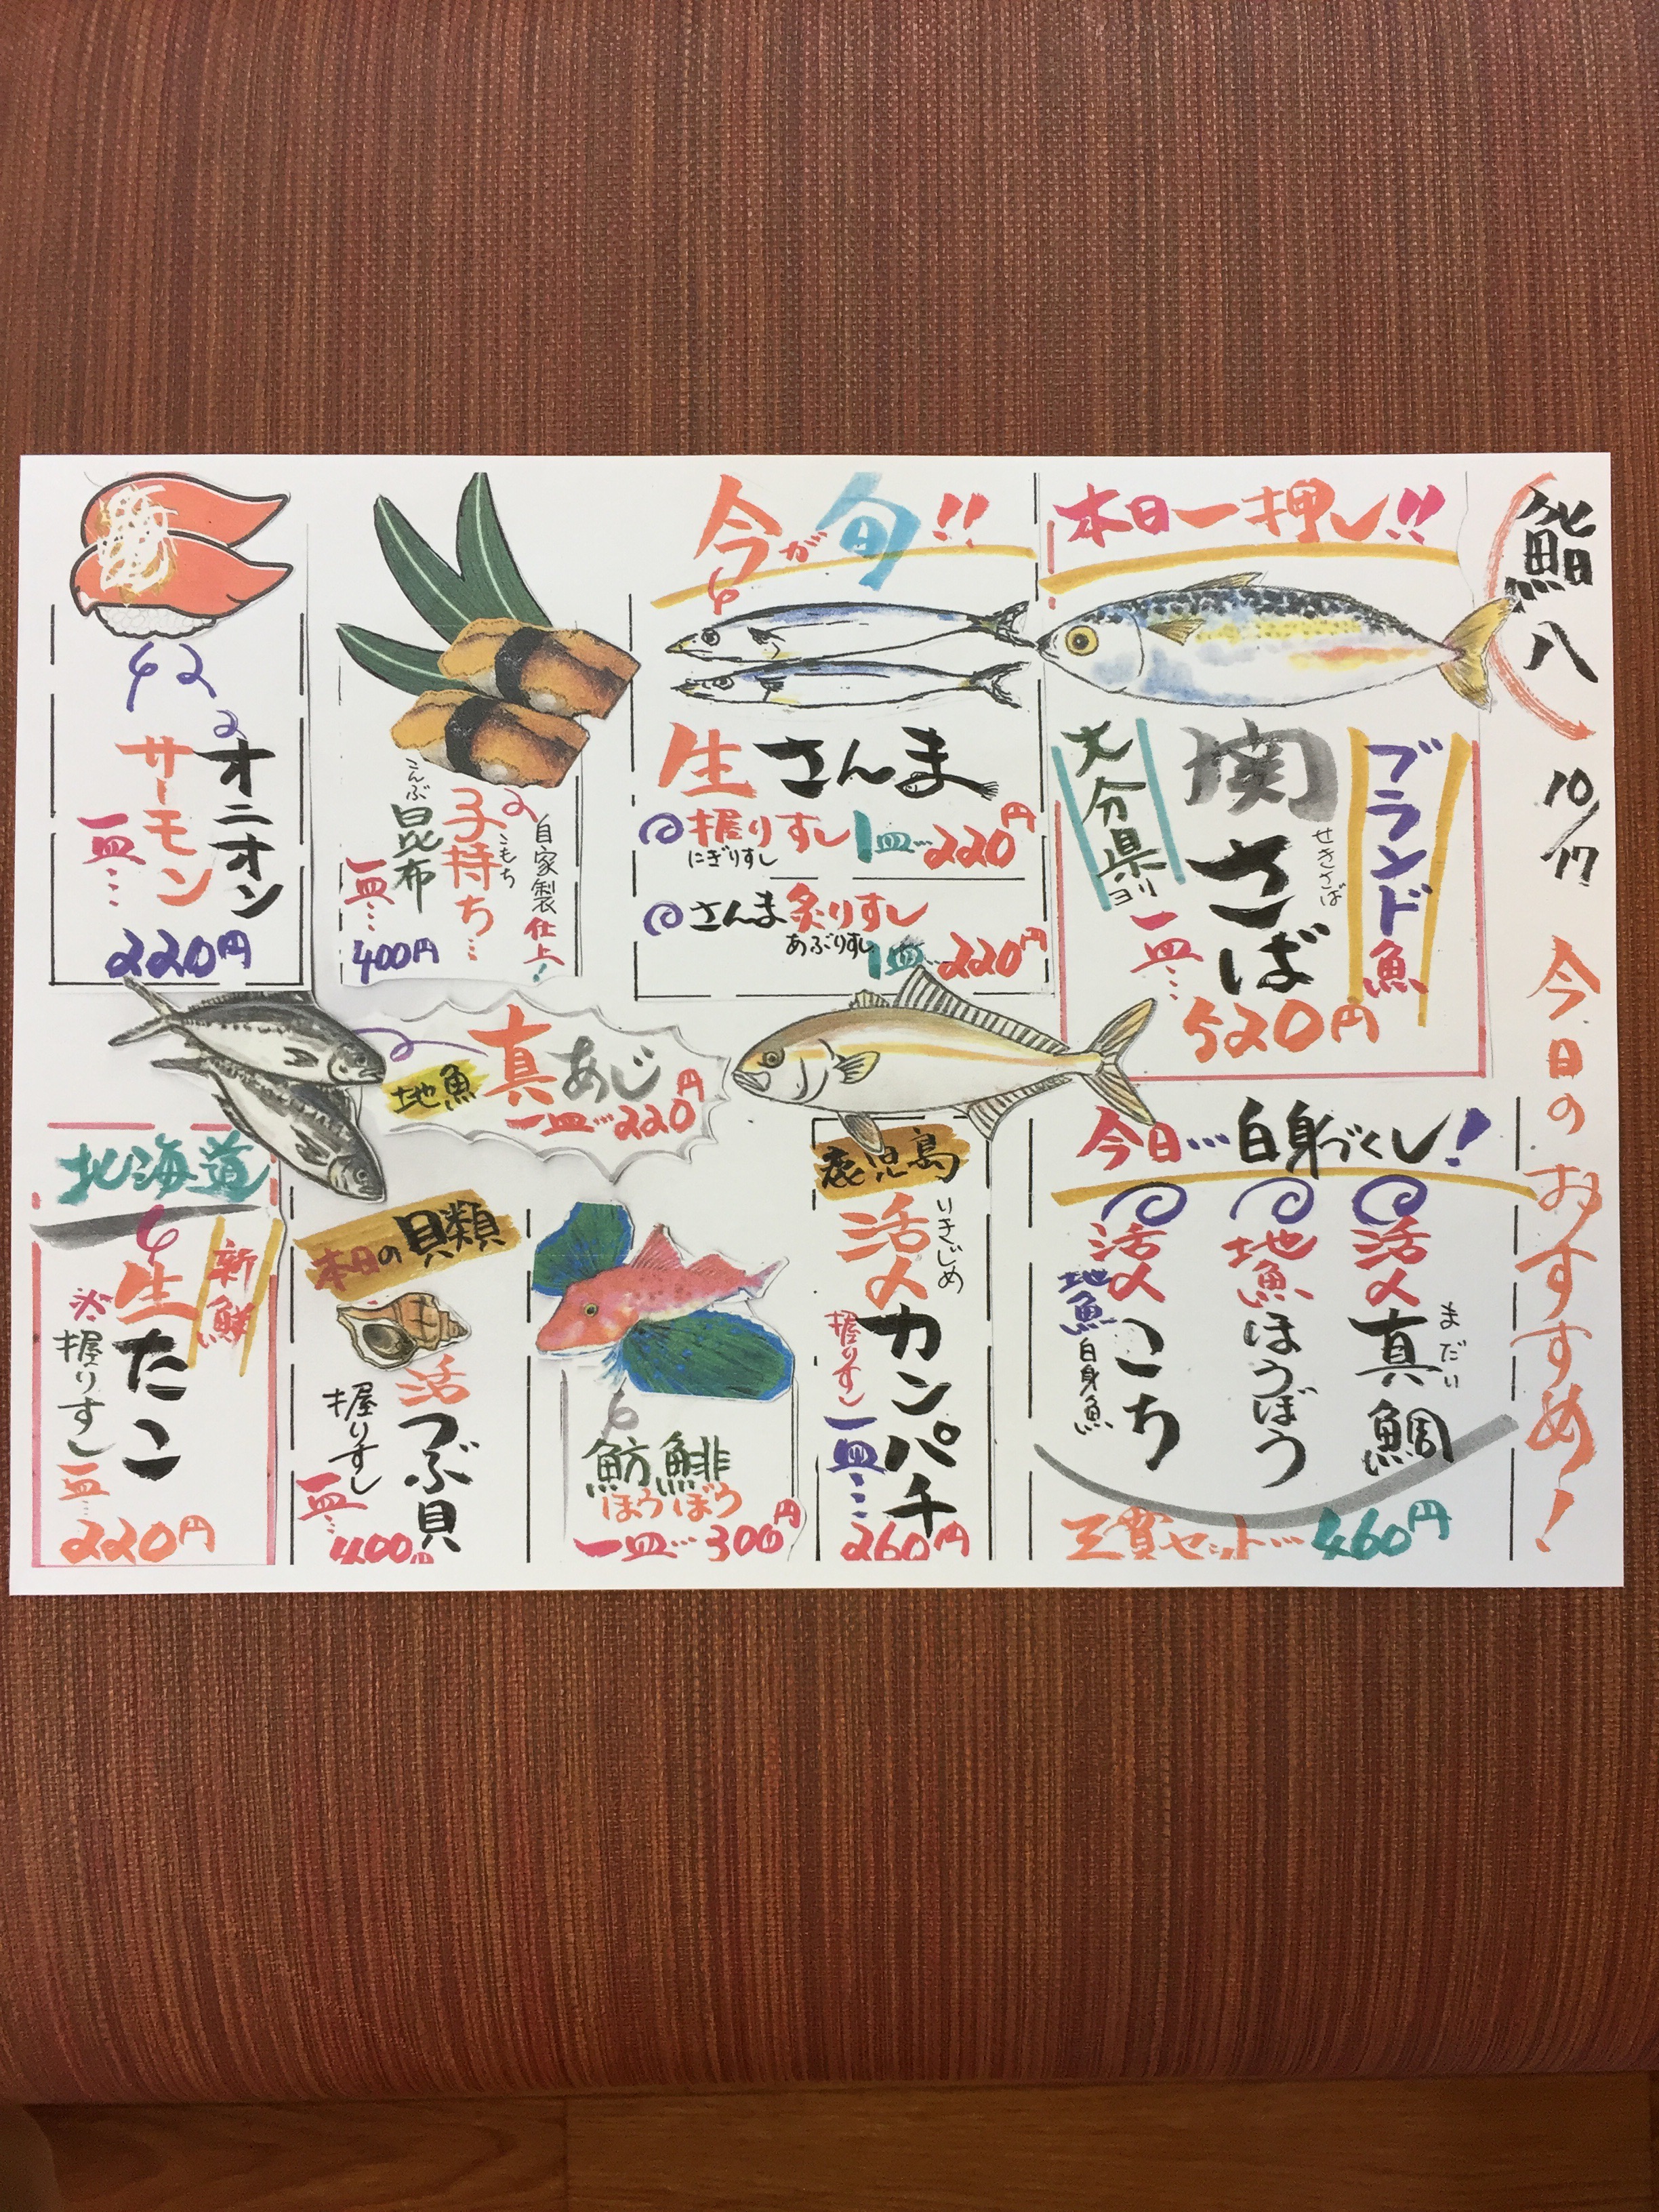 鮨八
10/17
今日のおすすめ!
本日一押し!!
ブランド魚
関さば
せきさば
大分県ヨリ
一皿…
520円
今が旬!!
生さんま
握りすし 1皿…220円
にぎりすし
さんま炙りすし
あぶりすし
1皿…220円
自家製仕上!
子持ち…
こもち
昆布
こんぶ
一皿…
400円
オニオン
サーモン
一皿…
220円
地魚
真あじ
一皿…220円
今日…白身づくし!
活〆真鯛
まだい
地魚ほうぼう
活〆こち
地魚白身魚
三貫セット…460円
鹿児島
活〆カンパチ
いきじめ
握りすし
一皿…
260円
魴鮄
ほうぼう
一皿…300円
本日の貝類
活つぶ貝
握りすし
一皿…
400円
北海道
新鮮
生たこ
握りすし
一皿…
220円